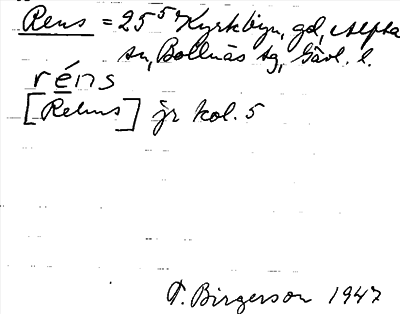 Rens = 25⁵⁹ Kyrkbyn, gd, Alfta
sn, Bollnäs tg, Gävl. l.
réns
[Rehns] jr kol. 5
T. Birgerson 1947